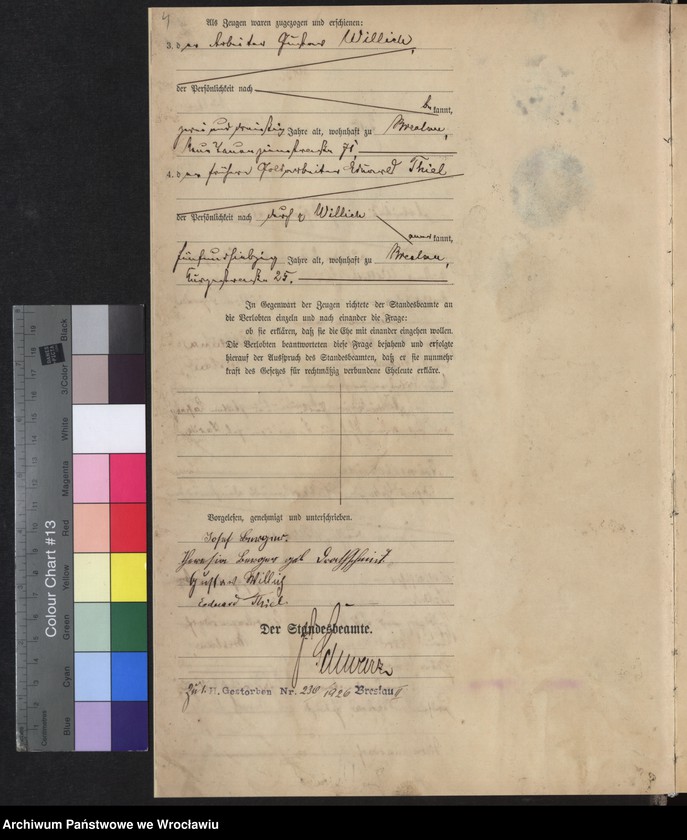 4
Als Zeugen waren zugezogen und erschienen:
3. der Arbeiter Gustav Willich,
der Persönlichkeit nach
be kannt,
zwei und dreißig Jahre alt, wohnhaft zu Breslau,
Neue Tauentzienstraße 71,
4. der frühere Holzarbeiter Eduard Thiel
der Persönlichkeit nach durch p Willich
aner kannt,
fünfundsiebzig Jahre alt, wohnhaft zu Breslau,
25.
In Gegenwart der Zeugen richtete der Standesbeamte an
die Verlobten einzeln und nach einander die Frage:
ob sie erklären, daß sie die Ehe mit einander eingehen wollen.
Die Verlobten beantworteten diese Frage bejahend und erfolgte
hierauf der Ausspruch des Standesbeamten, daß er sie nunmehr
kraft des Gesetzes für rechtmäßig verbundene Eheleute erkläre.
Vorgelesen, genehmigt und unterschrieben.
Josef Berger.
Theresia Berger geb.
Gustav Willich
Eduard Thiel.
Der Standesbeamte.
Schwarz
Zu 1. H. Gestorben Nr. 238 1926 Breslau II
Colour Chart #13
Blue
Cyan
Green
Yellow
Red
Magenta
White
3/Color
Black
Centimetres
Archiwum Państwowe we Wrocławiu